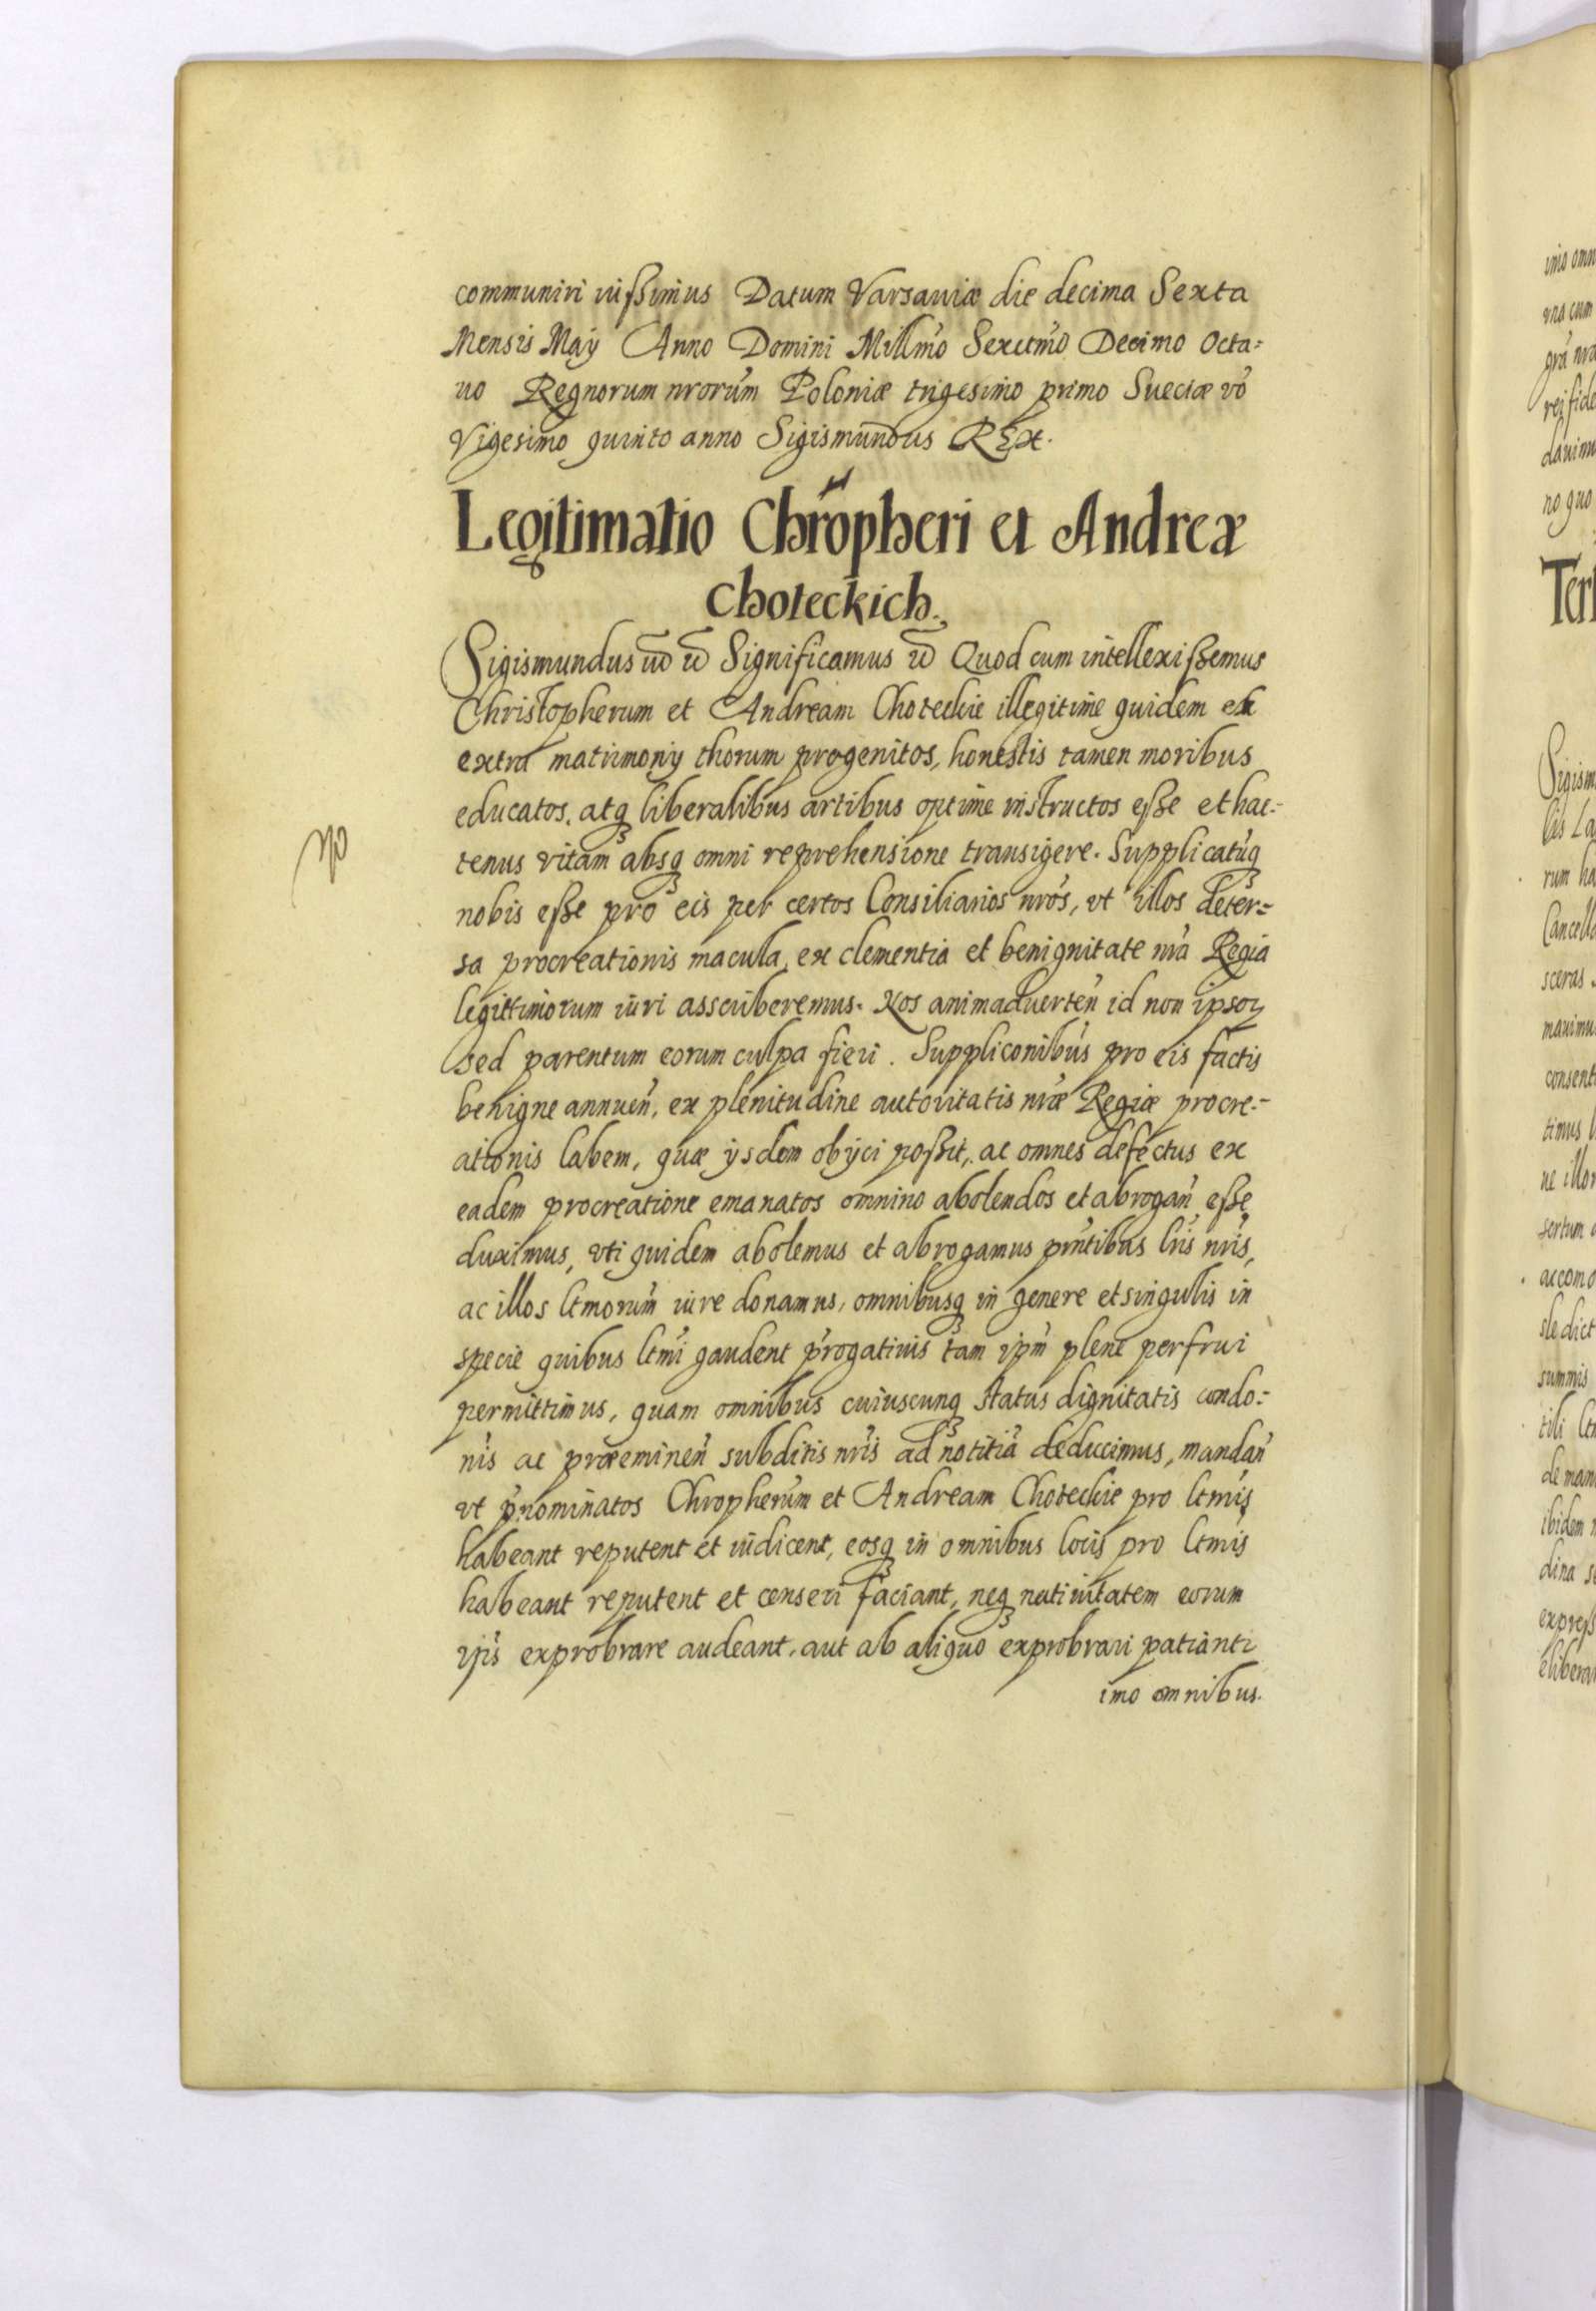 communiri iussimus Datum Varsaviæ die decima Sexta
Mensis Maÿ Anno Domini Millmo Sexctmo Decimo Octa=
uo Regnorum nrorum Poloniæ trigesimo primo Sueciæ vo
Vigesimo quinto anno Sigismundus REx.
Legitimatio Chropheri et Andreæ
Choteckich.
Sigismundus Significamus Quod cum intellexissemus
Christopherum et Andream Choteckie illegitime quidem et
extra matrimonÿ thorum progenitos, honestis tamen moribus
educatos, atq liberalibus artibus optime instructos esse et hac=
tenus vitam absq omni reprehensione transigere. Supplicatuq
nobis esse pro eis per certos Consiliarios nros, vt illos deter=
sa procreationis macula, ex clementia et benignitate nra Regia
legittimorum iuri asscriberemus. Nos animaduerten id non ipsoꝝ
sed parentum eorum culpa fieri. Suppliconibus pro eis factis
benigne annuen, ex plenitudine autoritatis nræ Regiæ procre=
ationis labem, quæ ÿsdem obÿci possit, ac omnes defectus ex
eadem procreatione emanatos omnino abolendos et abrogan esse
duximus, vti quidem abolemus et abrogamus pntibus lris nris,
ac illos ltmorum iure donamus, omnibusq in genere et singulis in
specie quibus ltmi gaudent progatiuis tam ipm plene perfrui
permittimus, quam omnibus cuiuscunq status dignitatis condo=
nis ac præeminen subditis nris ad notitia deducimus, mandan
vt pnominatos Chropherum et Andream Choteckie pro ltmis
habeant reputent et iudicent, eosq in omnibus locis pro ltmis
habeant reputent et censeri faciant, neq natiuitatem eorum
ijs exprobrare audeant, aut ab aliquo exprobrari patianti
imo omnibus.